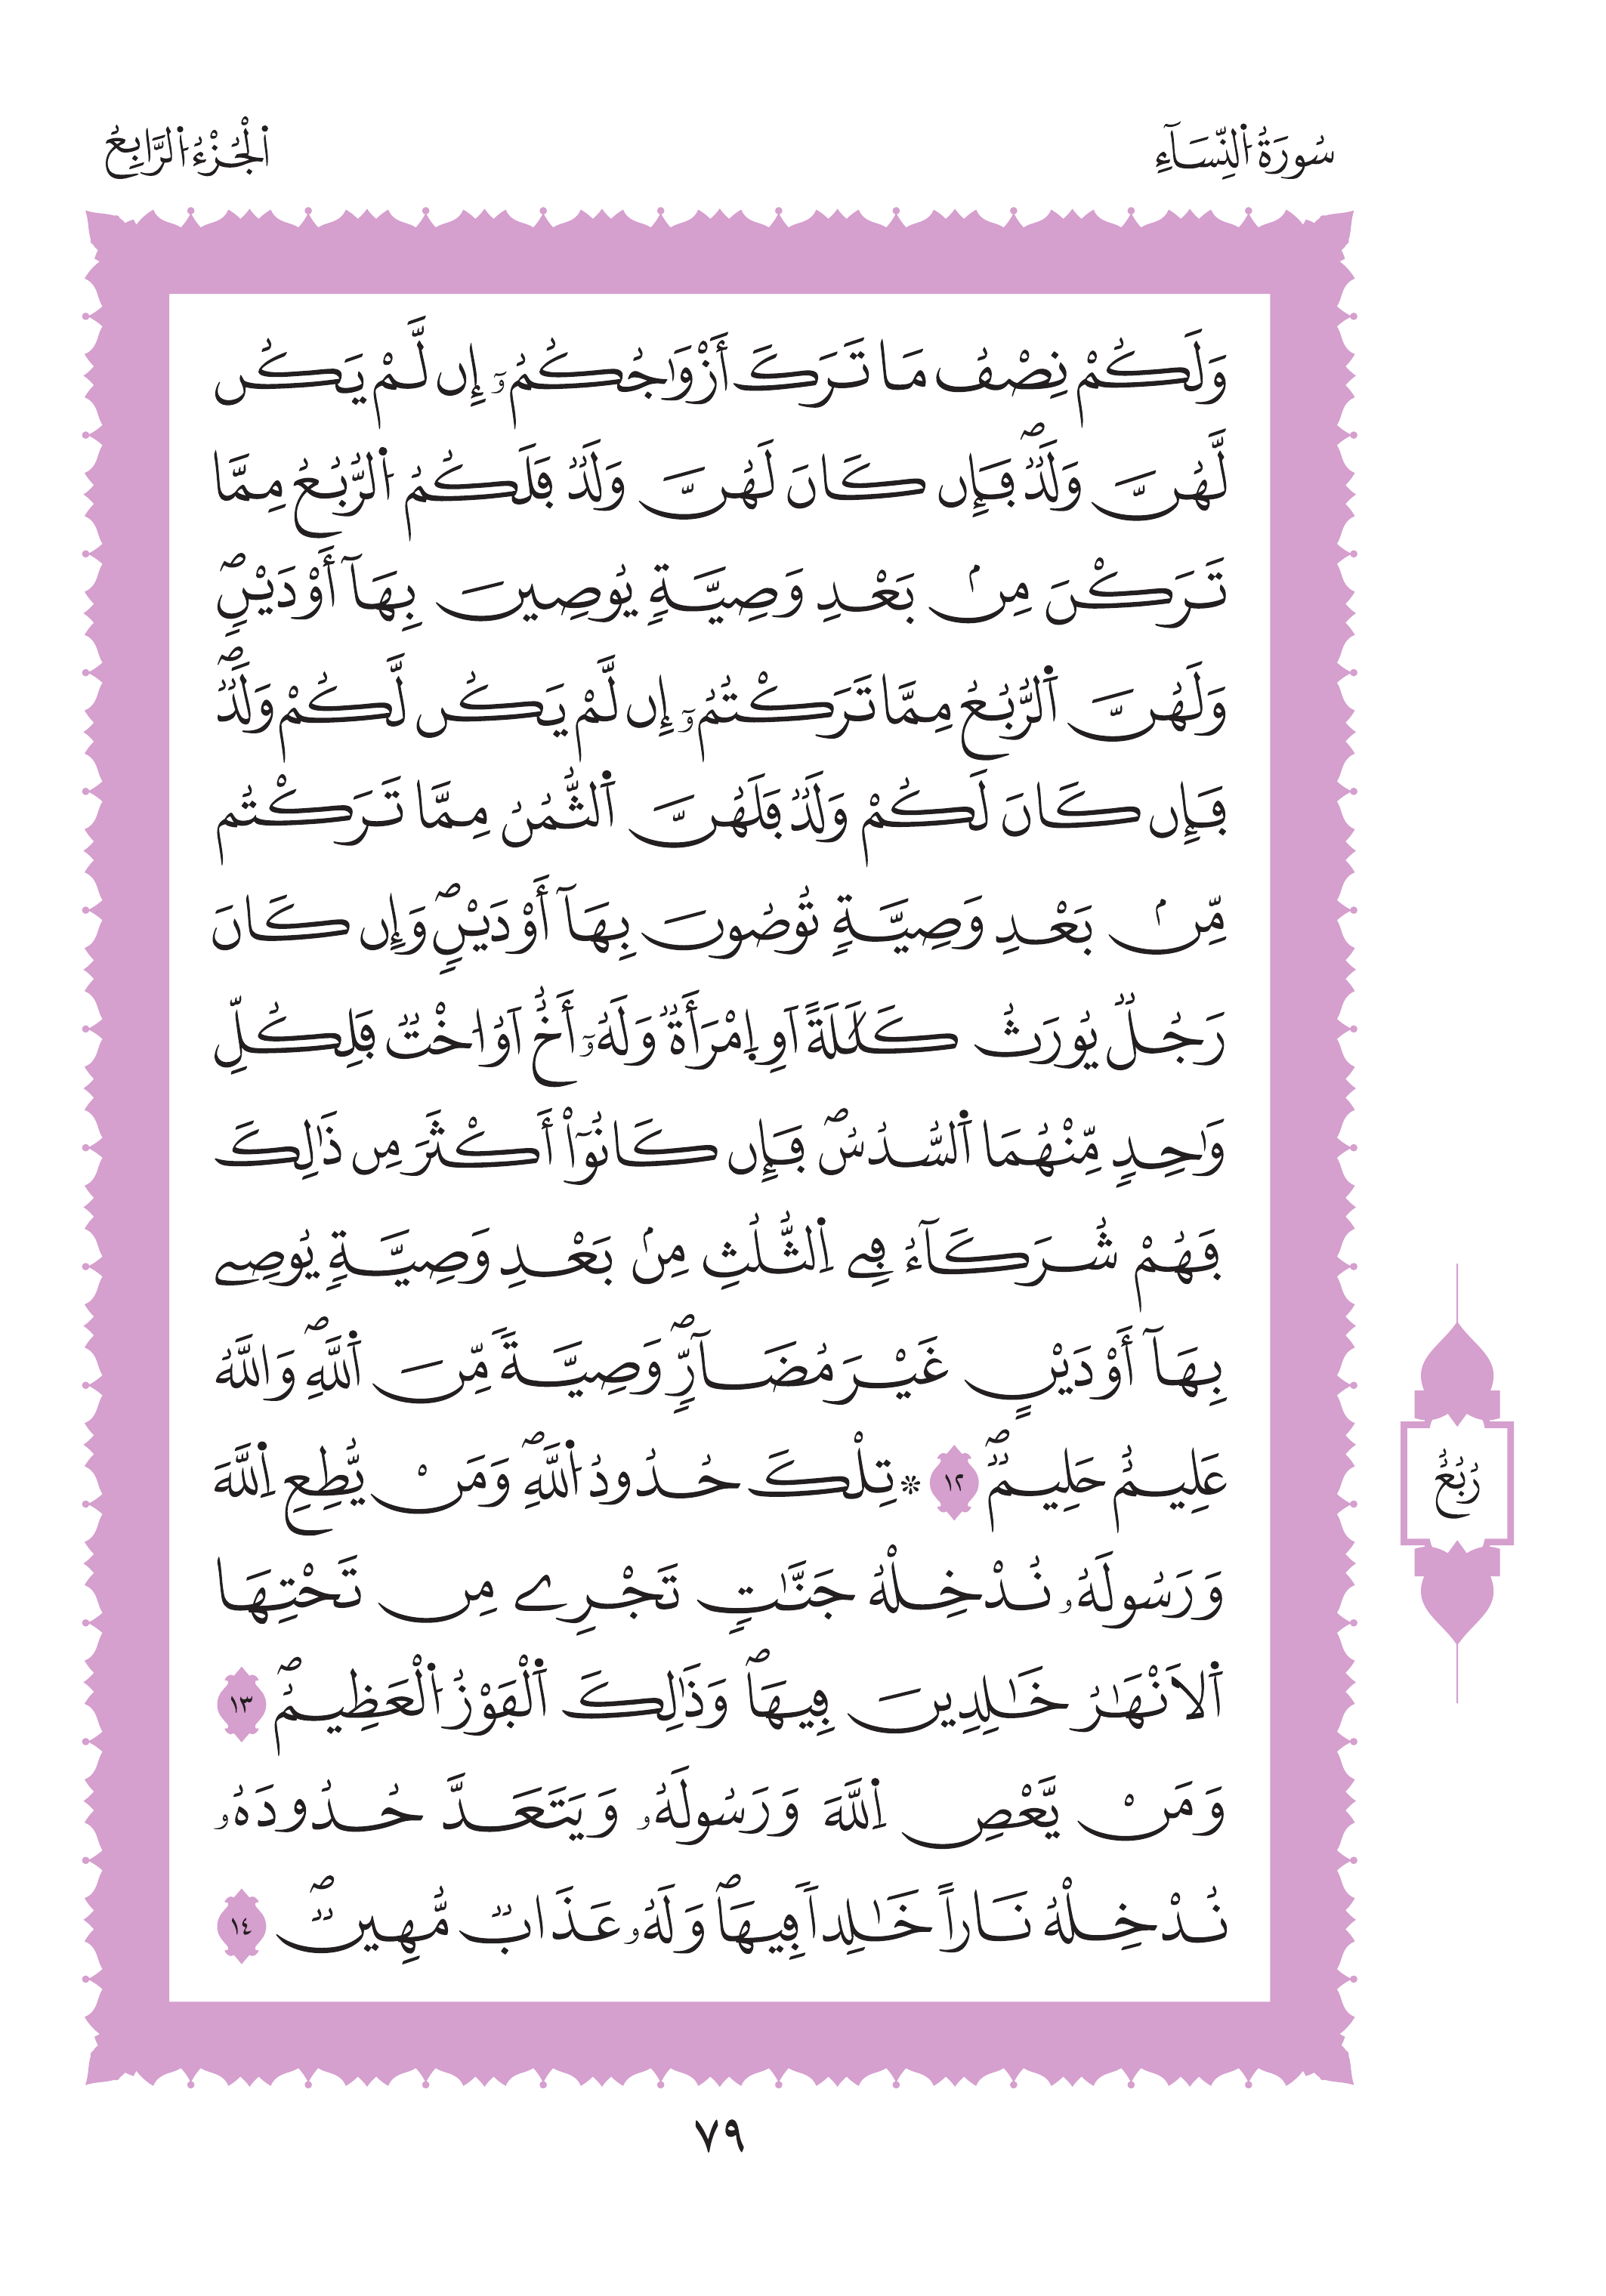 سُورَةُ اُ۬لنِّسَآءِ
اَ۬لْجُزْءُ اُ۬لرَّابِعُ
وَلَكُمْ نِصْفُ مَا تَرَكَ أَزْوَٰجُكُمُۥٓ إِن لَّمْ يَكُن
لَّهُنَّ وَلَدٞۖ فَإِن كَانَ لَهُنَّ وَلَدٞ فَلَكُمُ اُ۬لرُّبُعُ مِمَّا
تَرَكْنَ مِنۢ بَعْدِ وَصِيَّةٖ يُوصِينَ بِهَآ أَوْ دَيْنٖۖ
وَلَهُنَّ اَ۬لرُّبُعُ مِمَّا تَرَكْتُمُۥٓ إِن لَّمْ يَكُن لَّكُمْ وَلَدٞۖ
فَإِن كَانَ لَكُمْ وَلَدٞ فَلَهُنَّ اَ۬لثُّمُنُ مِمَّا تَرَكْتُم
مِّنۢ بَعْدِ وَصِيَّةٖ تُوصُونَ بِهَآ أَوْ دَيْنٖۖ وَإِن كَانَ
رَجُلٞ يُورَثُ كَلَٰلَةً اَوِ اِ۪مْرَأَةٞ وَلَهُۥٓ أَخٌ اَوُ ا۟خْتٞ فَلِكُلِّ
وَٰحِدٖ مِّنْهُمَا اَ۬لسُّدُسُۖ فَإِن كَانُوٓاْ أَكْثَرَ مِن ذَٰلِكَ
فَهُمْ شُرَكَآءُ فِے اِ۬لثُّلُثِ مِنۢ بَعْدِ وَصِيَّةٖ يُوصِے
بِهَآ أَوْ دَيْنٍ غَيْرَ مُضَآرّٖۖ وَصِيَّةٗ مِّنَ اَ۬للَّهِۖ وَاللَّهُ
عَلِيمٌ حَلِيمٞۖ ١٢ ۞ تِلْكَ حُدُودُ اُ۬للَّهِۖ وَمَنْ يُّطِعِ اِ۬للَّهَ
وَرَسُولَهُۥ نُدْخِلْهُ جَنَّٰتٖ تَجْرِے مِن تَحْتِهَا
اَ۬لَانْهَٰرُ خَٰلِدِينَ فِيهَاۖ وَذَٰلِكَ اَ۬لْفَوْزُ اُ۬لْعَظِيمُۖ ١٣
وَمَنْ يَّعْصِ اِ۬للَّهَ وَرَسُولَهُۥ وَيَتَعَدَّ حُدُودَهُۥ
نُدْخِلْهُ نَاراً خَٰلِداٗ فِيهَاۖ وَلَهُۥ عَذَابٞ مُّهِينٞۖ ١٤
رُبُعُ
٧٩